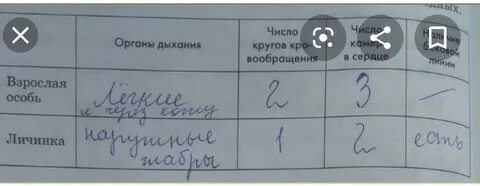 дных.
Органы дыхания
Число кругов кровообращения
Число камер в сердце
Наличие боковой линии
Взрослая особь
Лёгкие и через кожу
2
3
—
Личинка
наружные жабры
1
2
есть